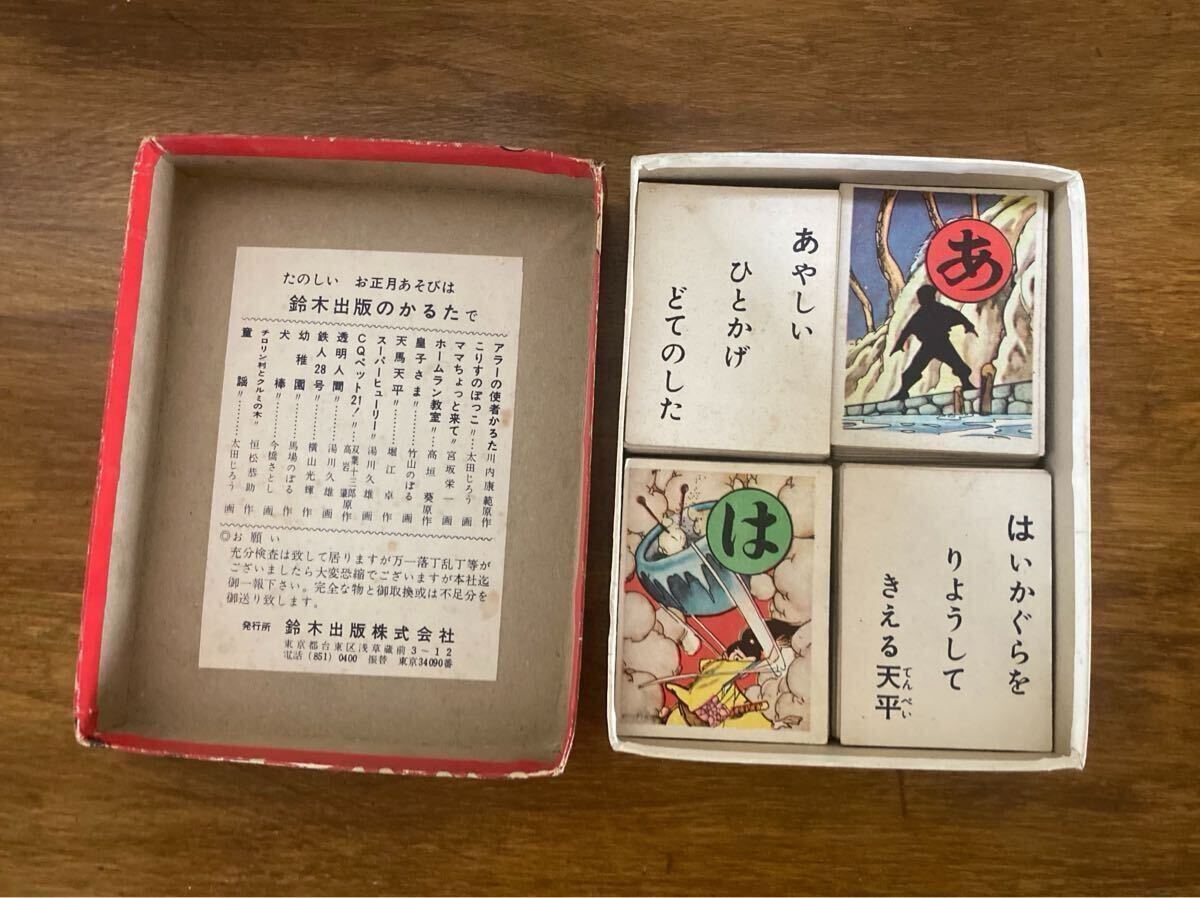 たのしい お正月あそびは
鈴木出版のかるたで
アラーの使者かるた 川内康範原作
こりすのぽっこ〃 太田じろう画
ママちょっと来て〃 宮坂栄一画
ホームラン教室〃 高垣葵原作
皇子さま〃 竹山のぼる画
天馬天平〃 堀江卓作
スーパーヒューリー〃 湯川久雄画
CQペット21!〃 双葉十三郎原作 高岩肇
透明人間〃 湯川久雄画
鉄人28号〃 横山光輝作
幼稚園〃 馬場のぼる画
犬棒〃 今橋さとし画
チロリン村とクルミの木〃 恒松恭助作
童謡〃 太田じろう画
◎お願い
充分検査は致して居りますが万一落丁乱丁等が
ございましたら大変恐縮でございますが本社迄
御一報下さい。完全な物と御取換或は不足分を
御送り致します。
発行所 鈴木出版株式会社
東京都台東区浅草蔵前3-12
電話(851)0400 振替 東京34090番
あやしい
ひとかげ
どてのした
あ
は
はいかぐらを
りようして
きえる天平
てんぺい